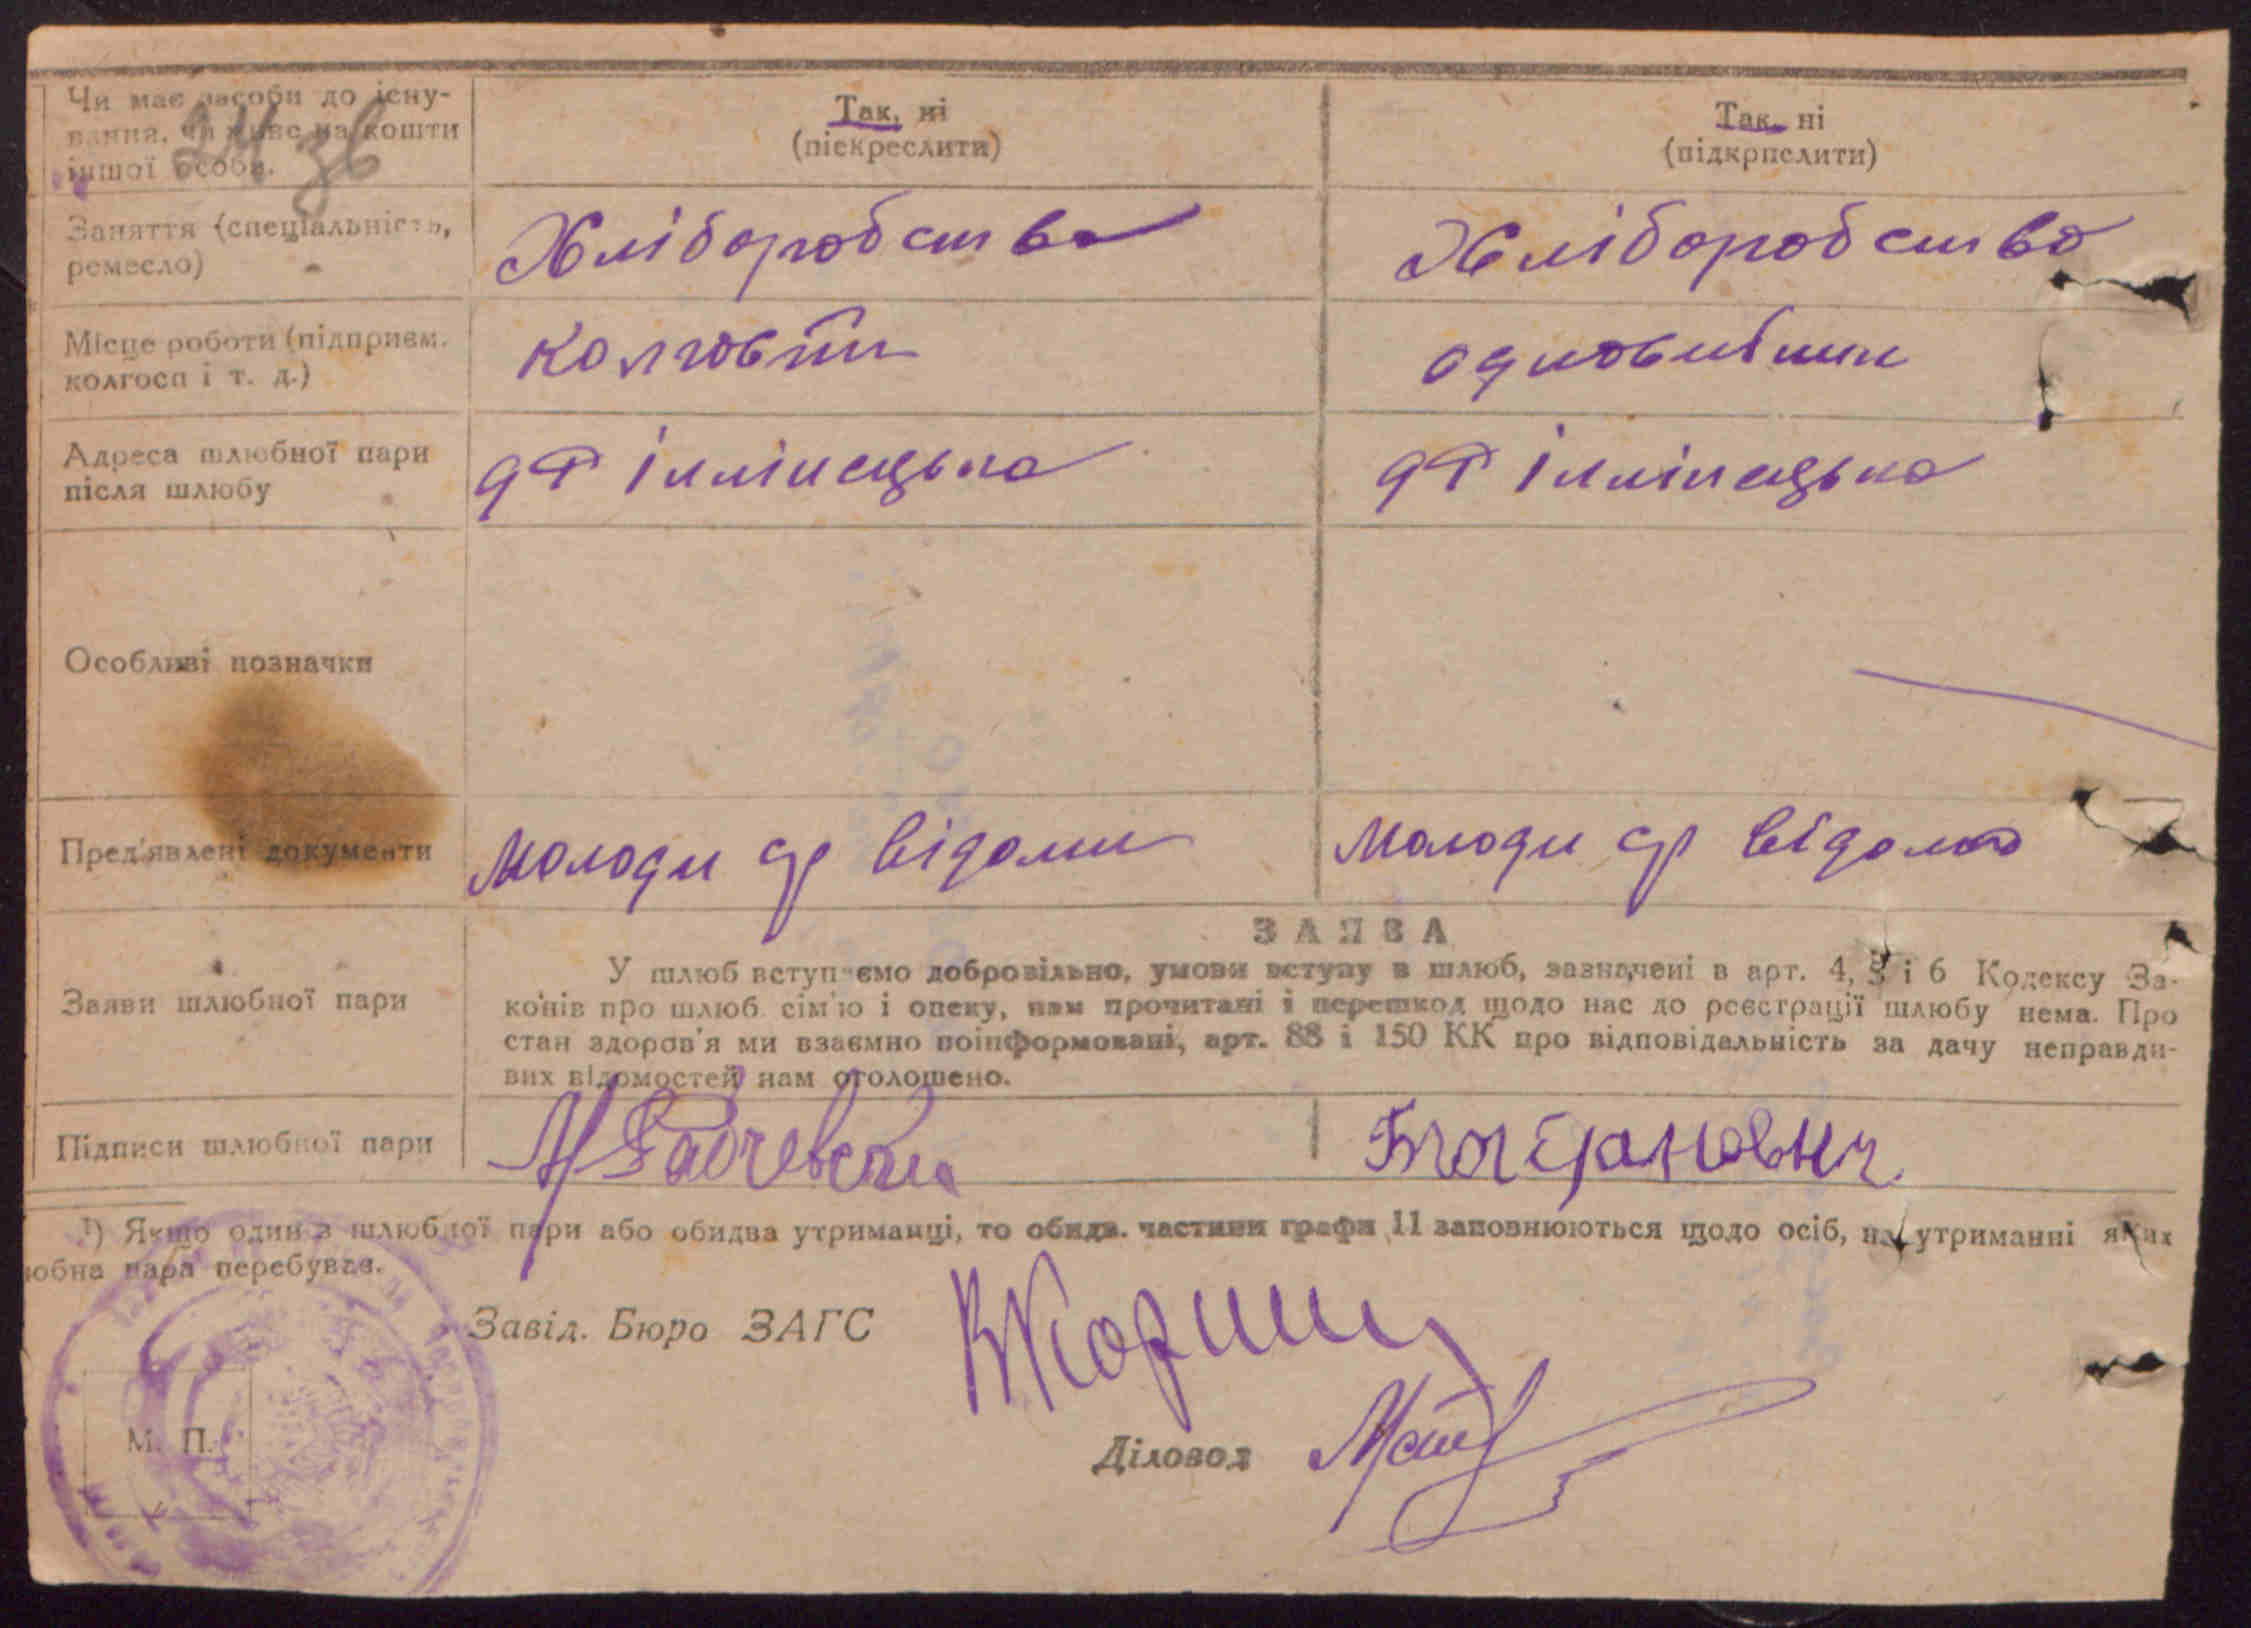 Чи має засоби до існу-
вання, чи живе на кошти
іншої особи.
24 зв
Так, ні
(піекреслити)
Так, ні
(підкрпслити)
Заняття (спеціальність,
ремесло)
Хліборобства
Хліборобство
Місце роботи (підприєм.
колгосп і т. д.)
Адреса шлюбної пари
після шлюбу
Іллінецька
Іллінецька
Особливі позначки
Пред'явлені документи
Молоди ср відоми
Молоди ср відомо
ЗАЯВА
Заяви шлюбної пари
У шлюб вступаємо добровільно, умови вступу в шлюб, зазначені в арт. 4, 5 і 6 Кодексу За-
конів про шлюб. сім'ю і опеку, нам прочитані і перешкод щодо нас до реєстрації шлюбу нема. Про
стан здоров'я ми взаємно поінформовані, арт. 88 і 150 КК про відповідальність за дачу неправди-
вих відомостей нам оголошено.
Підписи шлюбної пари
¹) Якщо один з шлюбної пари або обидва утриманці, то обидв. частини графи 11 заповнюються щодо осіб, на утриманні яких
юбна пара перебуває.
Завід. Бюро ЗАГС
М. П.
Діловод